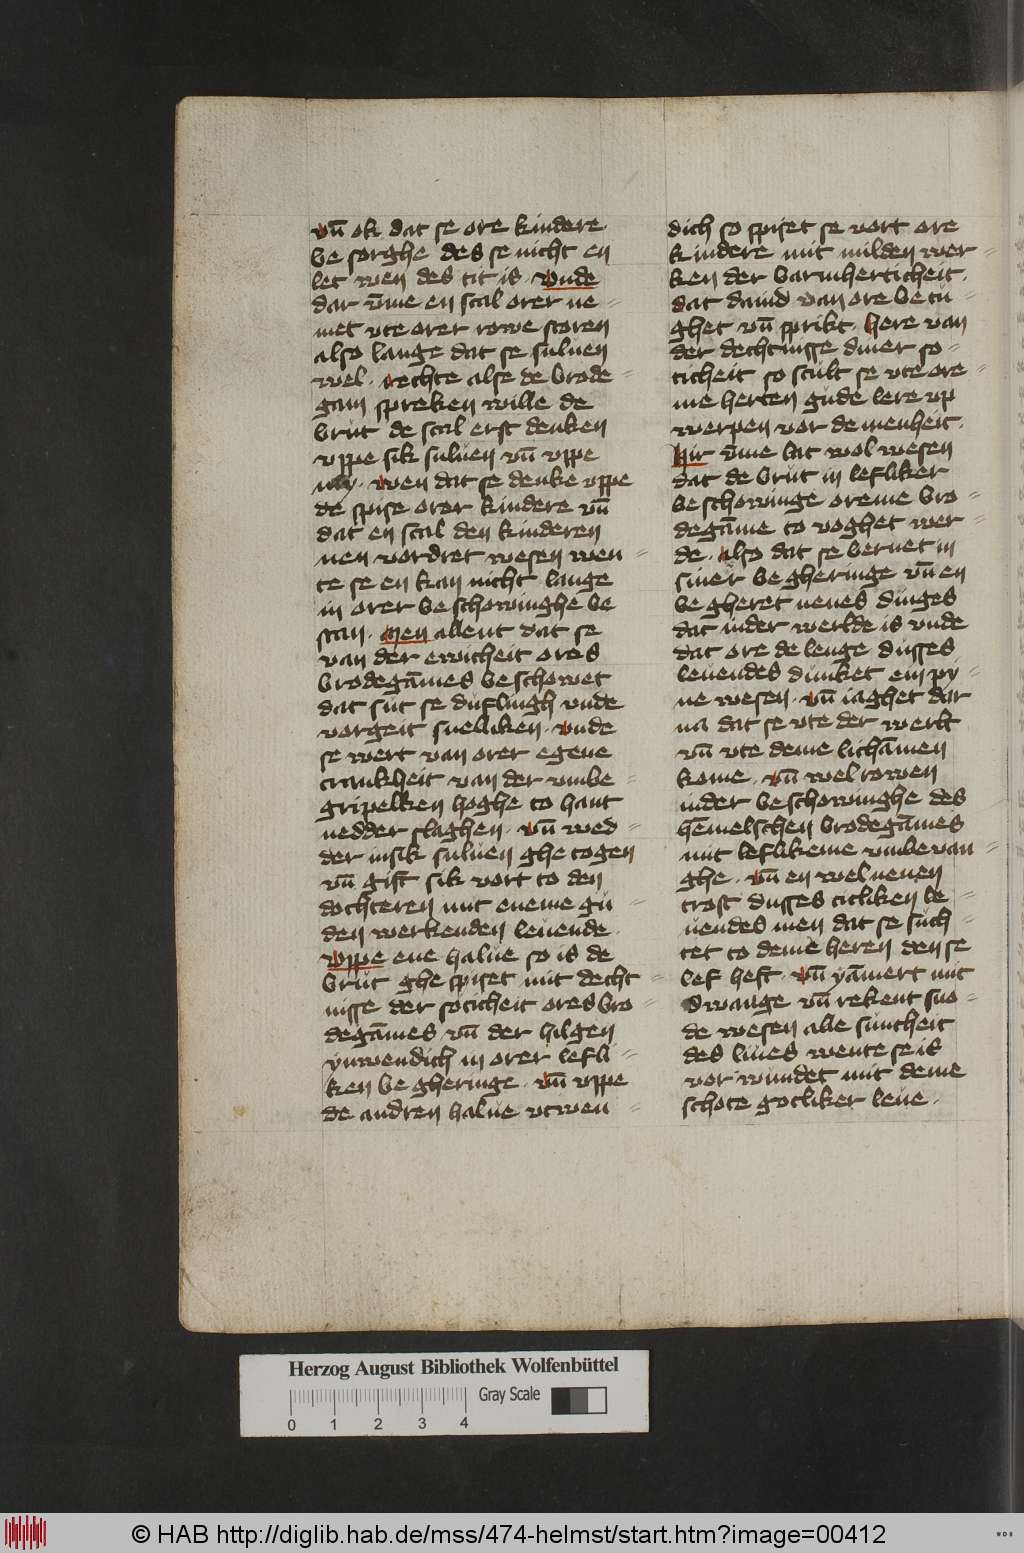 vn̄ ok dat se ore kindere
be sorghe des se nicht en
let wen des tit is · vnde
dar v̄me en scal orer ne-
met vte orer rowe storen
also lange dat se suluen
wel · rechte alse de brode-
gam spreken wille de
brut de scal erst denken
vppe sik suluen vn̄ vppe
my · wen dat se denke vppe
de spise orer kindere vn̄
dat en scal den kinderen
nen vordret wesen wen-
te se en kan nicht lange
in orer be schowinghe be
stan · men allent dat se
van der ewicheit ores
brodegāmes beschowet
dat sut se duflingh vnde
vorgeit snelliken · vnde
se wert van orer egene
crankheit van der vmbe-
gripelken hoghe to hant
nedder slaghen · vn̄ wed-
der in sik suluen ghe togen
vn̄ gift sik vort to den
dochteren mit eneme gu-
den werkenden leuende ·
vppe ene halue so is de
brut ghe spiset mit decht-
nisse der soticheit ores bro-
degāmes vn̄ der hilgen
ynwendich in orer lefli-
ken be gheringe · vn̄ vppe
de andren halue vtwen-
dich so spiset se vort ore
kindere mit milden wer-
ken der barmherticheit ·
dat dauid van ore be tu-
ghet vn̄ sprikt · here van
der dechtnisse diner so-
ticheit so scult se vte ore-
me herten gude lere vp
werpen vor de menheit ·
hir v̄me lat wol wesen
dat de brut in lefliker
be schowinge oreme bro-
degāme to voghet wer-
de · also dat se bernet in
siner be gheringe vn̄ en
be gheret nenes dinges
dat in der werlde is vnde
dat ore de lenge dusses
leuendes dunket ein py-
ne wesen · vn̄ iaghet dar
na dat se vte der werlt
vn̄ vte deme lichāmen
kome · vn̄ wel rowen
in der be schowinghe des
hēmelschen brodegāmes
mit leflikeme vmbevan-
ghe · vn̄ en wel nenen
trost dusses titliken le-
uendes men dat se such-
tet to deme heren den se
lef heft · vn̄ yāmert mit
dwange vn̄ rekent sno-
de wesen alle suntheit
des liues wente se is
vor wundet mit deme
schote gotliker leue ·
Herzog August Bibliothek Wolfenbüttel
Gray Scale
0 1 2 3 4
© HAB http://diglib.hab.de/mss/474-helmst/start.htm?image=00412